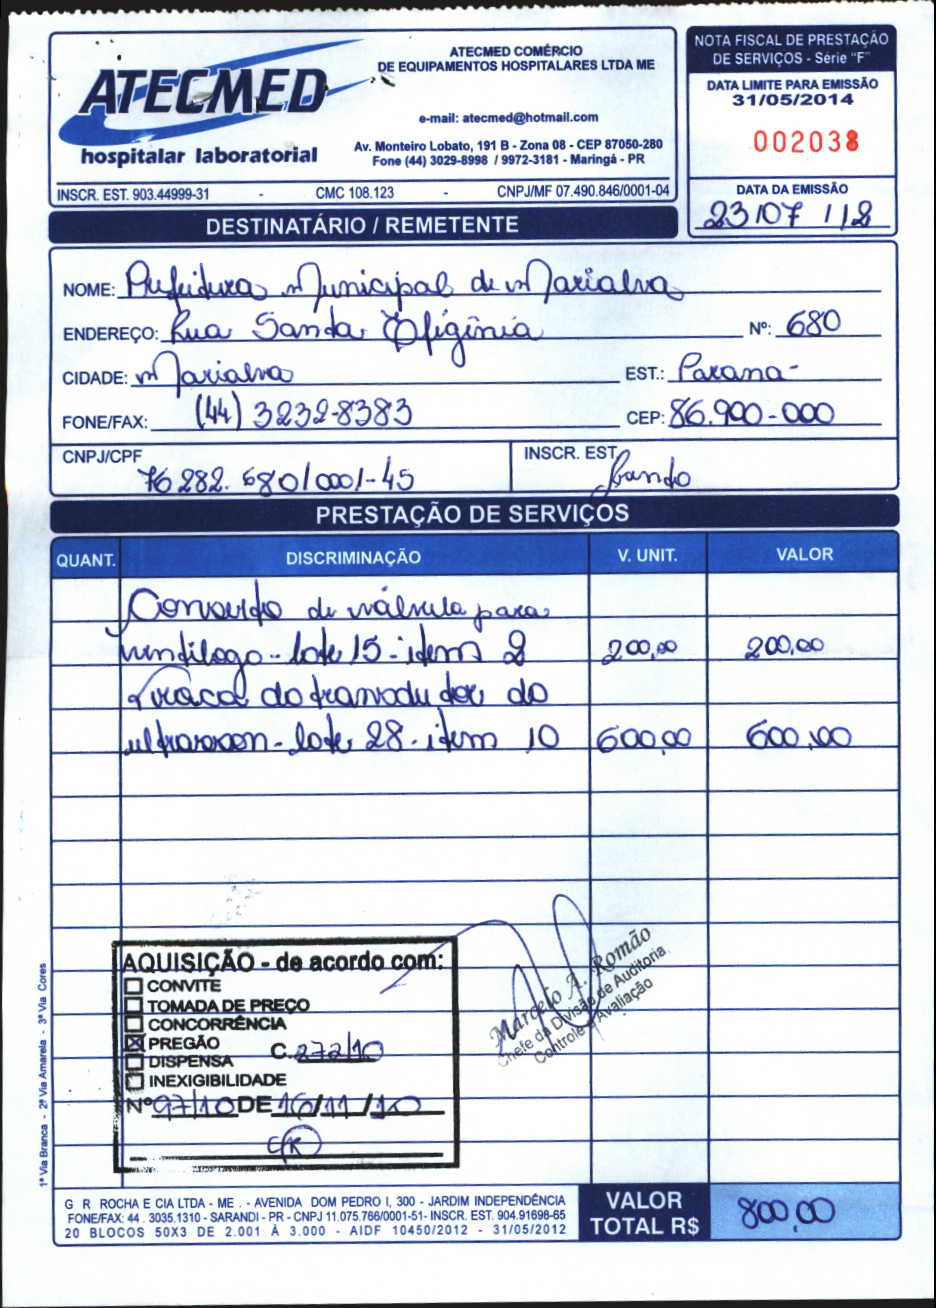 ATECMED
hospitalar laboratorial
ATECMED COMÉRCIO
DE EQUIPAMENTOS HOSPITALARES LTDA ME
e-mail: atecmed@hotmail.com
Av. Monteiro Lobato, 191 B - Zona 08 - CEP 87050-280
Fone (44) 3029-8998 / 9972-3181 - Maringá - PR
INSCR. EST. 903.44999-31 - CMC 108.123 - CNPJ/MF 07.490.846/0001-04
NOTA FISCAL DE PRESTAÇÃO
DE SERVIÇOS - Série "F"
DATA LIMITE PARA EMISSÃO
31/05/2014
002038
DATA DA EMISSÃO
23/07/12
DESTINATÁRIO / REMETENTE
NOME: Prefeitura Municipal de Marialva
ENDEREÇO: Rua Santa Efigênia Nº: 680
CIDADE: Marialva EST.: Parana
FONE/FAX: (44) 3232-8383 CEP: 86.990-000
CNPJ/CPF 76 282. 680/0001-45 INSCR. EST. Isento
PRESTAÇÃO DE SERVIÇOS
QUANT. DISCRIMINAÇÃO V. UNIT. VALOR
Conserto de válvula para
lote 15 - item 2 200,00 200,00
do transdutor do
ultrassom - lote 28 - item 10 600,00 600,00
AQUISIÇÃO - de acordo com:
CONVITE
TOMADA DE PREÇO
CONCORRÊNCIA
PREGÃO C. 272/10
DISPENSA
INEXIGIBILIDADE
Nº 97/10 DE 16/11/10
Marcelo A. Romão
Chefe da Divisão de Auditoria
Controle e Avaliação
1ª Via Branca - 2ª Via Amarela - 3ª Via Cores
G R ROCHA E CIA LTDA - ME . - AVENIDA DOM PEDRO I, 300 - JARDIM INDEPENDÊNCIA
FONE/FAX: 44 . 3035.1310 - SARANDI - PR - CNPJ 11.075.766/0001-51- INSCR. EST. 904.91698-65
20 BLOCOS 50X3 DE 2.001 À 3.000 - AIDF 10450/2012 - 31/05/2012
VALOR
TOTAL R$ 800,00